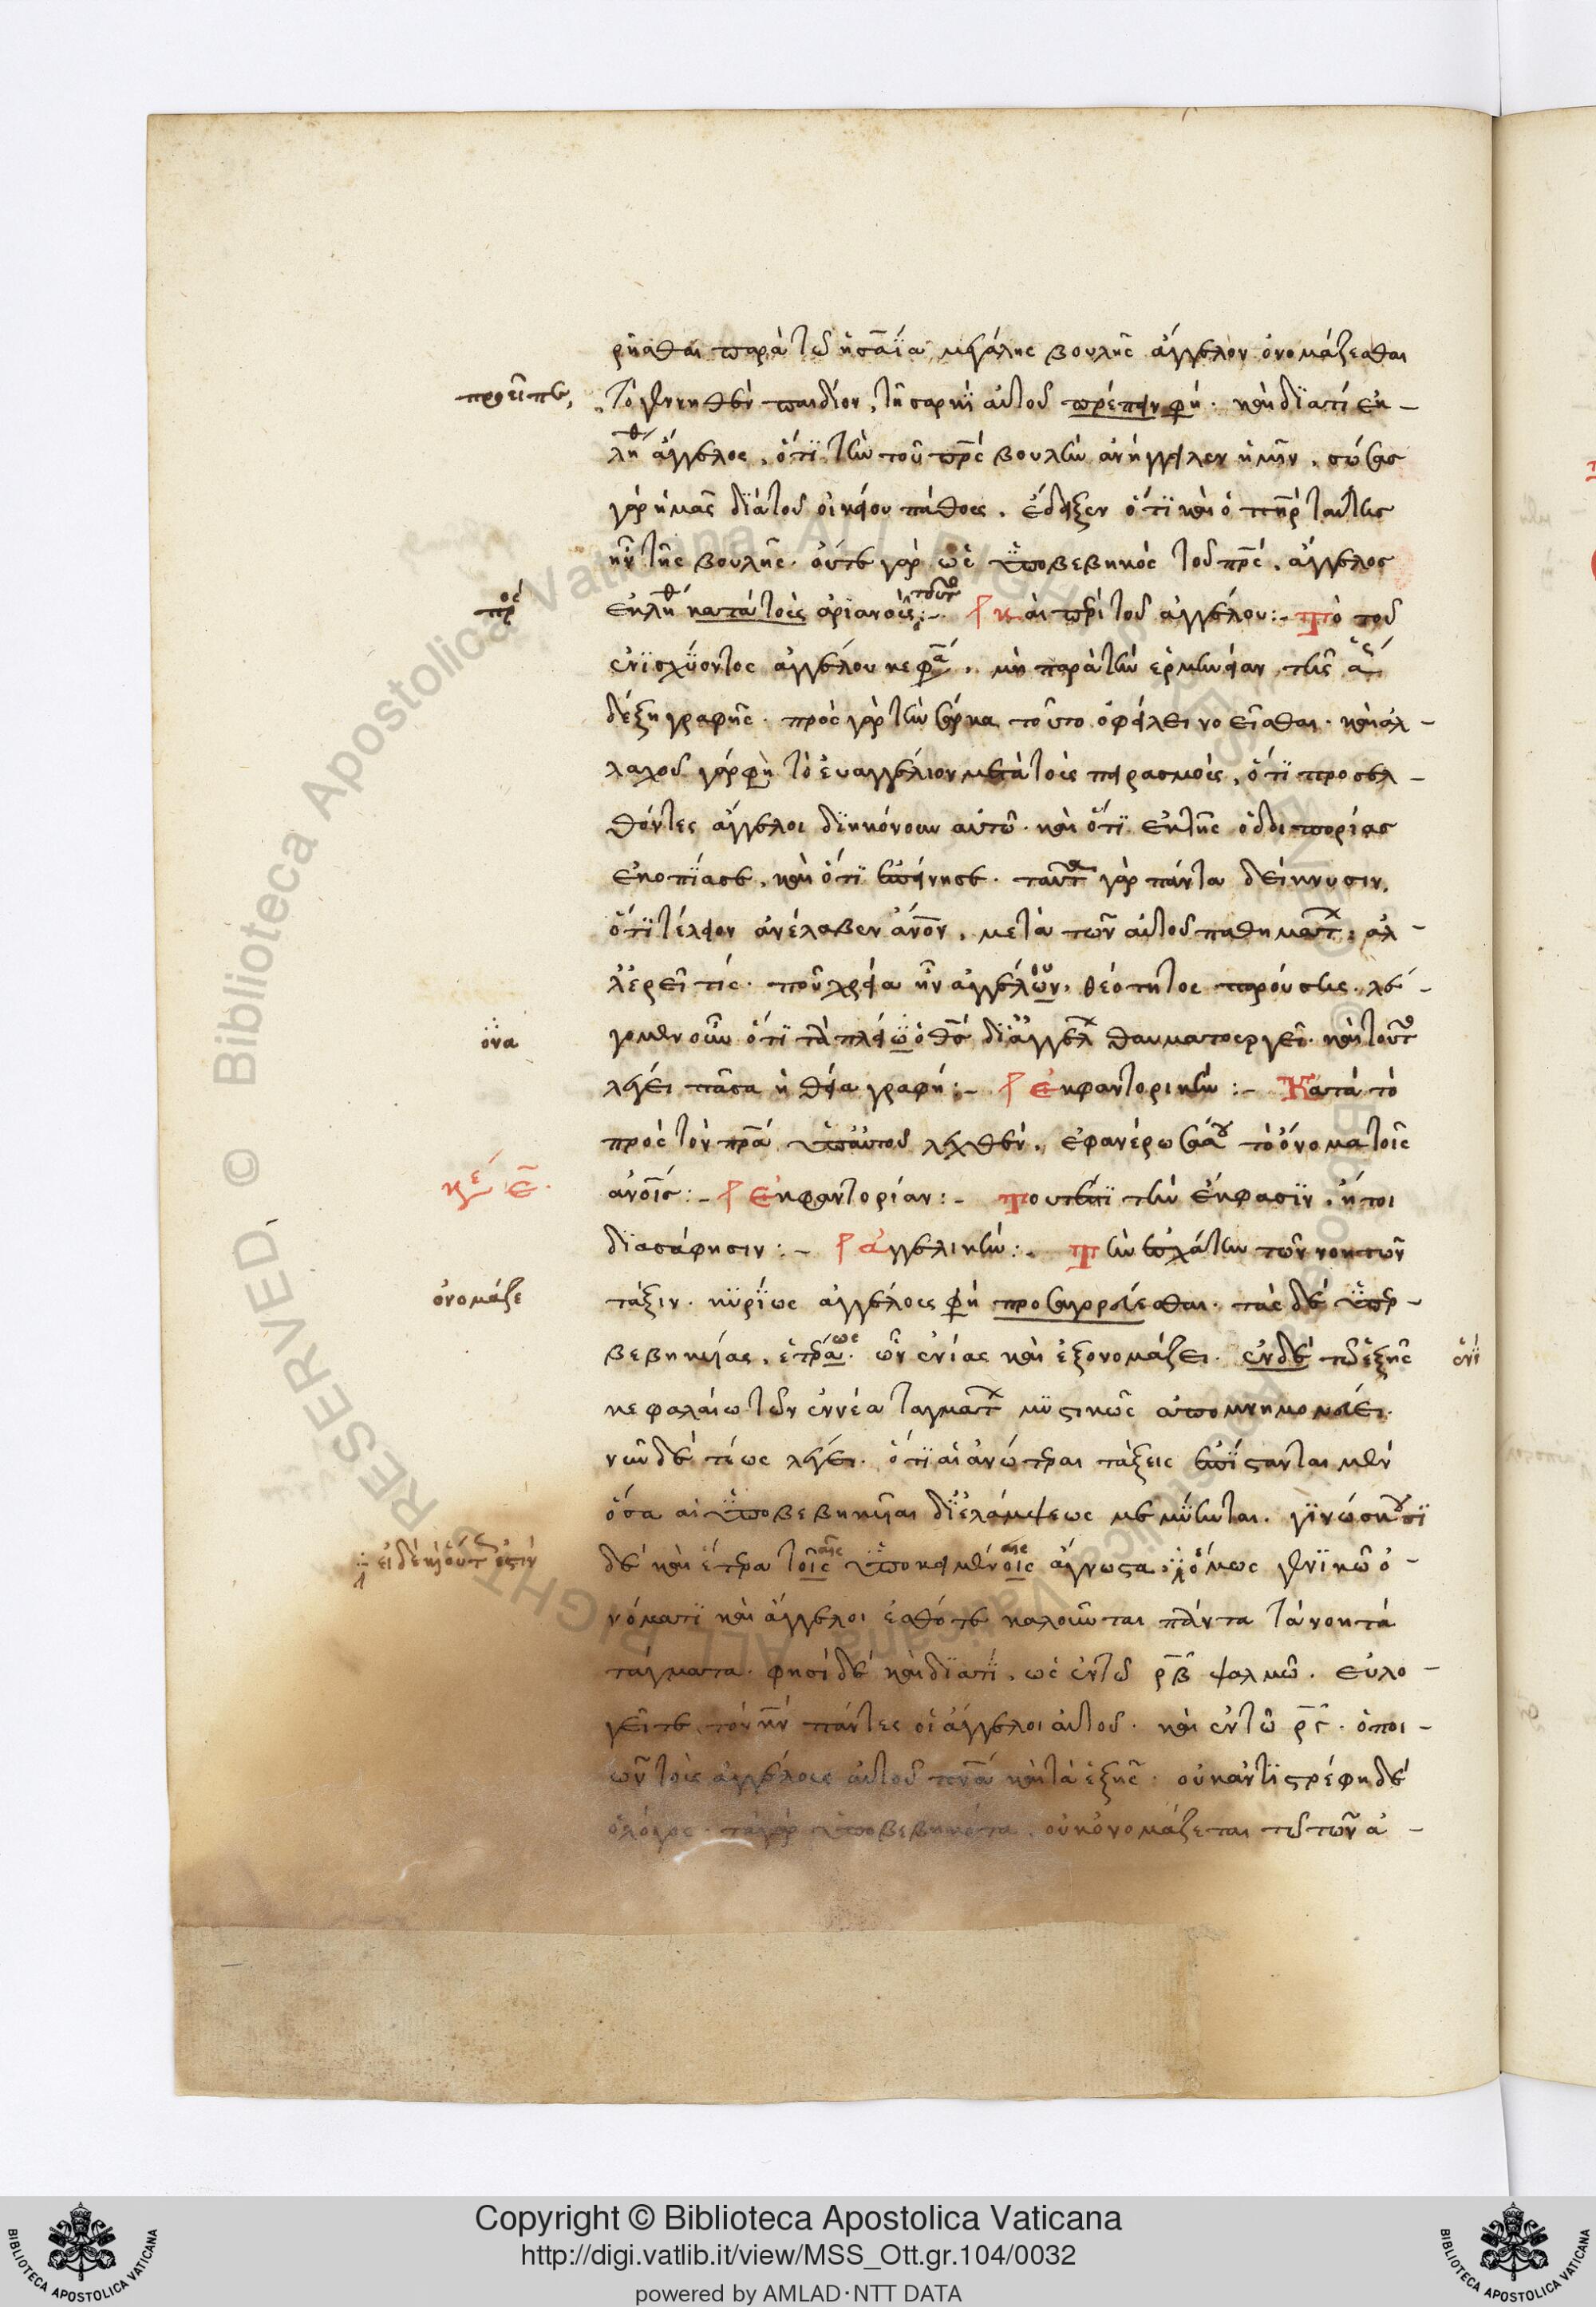 ρῆσθαι παρὰ τῶ ἠσαΐα μεγάλης βουλῆς ἄγγελον ὀνομάζεσθαι
προεῖπε,
τὸ γεννηθὲν παιδίον, τῆ σαρκὶ αὐτοῦ πρέπειν φη· καὶ διατί ἐκ-
λή^θ ἄγγελος, ὅτι τὴν τοῦ πρς βουλὴν ἀνήγγειλεν ἡμῖν, σώσας
γὰρ ἡμᾶς διὰ τοῦ οἰκείου πάθους, ἔδειξεν ὅτι καὶ ὁ πηρ ταύτης
ἦν τῆς βουλῆς· οὔτε γὰρ ὡς ὑποβεβηκὸς τοῦ πρς, ἄγγελος
πρὸς
ἐκλή^θ κατὰ τοὺς ἀρϊανούς:- Καὶ περὶ τοῦ ἀγγέλου:- Τὸ τοῦ
ἐνισχύοντος ἀγγέλου
δέξη γραφῆς· πρὸς γὰρ τὴν σάρκα τοῦτο ὀφείλει νοεῖσθαι· καὶ ἀλ-
λαχοῦ γάρ φη τὸ εὐαγγέλιον μετὰ τοὺς πειρασμοὺς, ὅτι προσελ-
θόντες ἄγγελοι διηκόνουν αὐτῶ· καὶ ὅτι ἐκ τῆς ὁδοιπορίας
ἐκοπίασε, καὶ ὅτι ἐπείνησε· ταῦτα γὰρ πάντα δείκνυσιν,
ὅτι τέλειον ἀνέλαβεν ἄνον, μετὰ τῶν αὐτοῦ παθημάτ, ἀλ-
λ᾽ ἐρεῖ τίς· ποῦ χρεία ἦν ἀγγέλων, θεότητος παρούσης· λέ-
ἵνα
γομεν οὖν ὅτι τὰ πλείω ὁ θς δι᾽ ἀγγέλ θαυματουργεῖ· καὶ τοῦτο
λέγει πᾶσα ἡ θεία γραφή:- Ἐκφαντορικὴν:- Κατὰ τὸ
πρὸς τὸν πρα ὑπ᾽ αὐτοῦ λεχθὲν, ἐφανέρωσά σου τὸ ὄνομα τοῖς
ἀνοις:- Ἐκφαντορίαν:- Τουτέστι τὴν ἔκφασιν, ἤτοι
διασάφησιν:- Ἀγγελικὴν:- Τὴν ἐσχάτην τῶν νοητῶν
ὀνομάζε
τάξιν· κυρίως ἀγγέλους φη προσαγορεύεσθαι· τὰς δὲ ὑπερ-
βεβηκυίας, ἑτέρως· ὧν ἐνίας καὶ ἐξονομάζει· ἐν δὲ τῶ ἑξῆς
ἐνὶ
κεφαλαίω τῶν ἐννέα ταγμάτ μυστικῶς ἀπομνημονεύει·
νῦν δὲ τέως λέγει· ὅτι αἱ ἀνώτεραι τάξεις ἐπίστανται μὲν
ὅσα αἱ ὑποβεβηκυῖαι δι᾽ ἐλάμψεως μεμύηνται. γινώσκουσι
δὲ καὶ ἕτερα τοῖς ὑποκειμένοις ἄγνωστα· ὅμως γενικῶ ὀ-
νόματι καὶ ἄγγελοι ἐσθότε καλοῦνται πάντα τὰ νοητὰ
τάγματα· φησὶ δὲ καὶ διατί, ὡς ἐν τῶ ρβ ψαλμῶ· εὐλο-
γεῖτε τὸν κν πάντες οἱ ἄγγελοι αὐτοῦ· καὶ ἐν τῶ ργ· ὁ ποι-
ῶν τοὺς ἀγγέλους αὐτοῦ πνα καὶ τὰ ἑξῆς· οὐκ ἀντιστρέφη δὲ
ὁ λόγος· τὰ γὰρ ὑποβεβηκότα, οὐκ ὀνομάζεται τῶ τῶν ἀ-
Copyright © Biblioteca Apostolica Vaticana
http://digi.vatlib.it/view/MSS_Ott.gr.104/0032
powered by AMLAD·NTT DATA
BIBLIOTECA APOSTOLICA VATICANA
BIBLIOTECA APOSTOLICA VATICANA